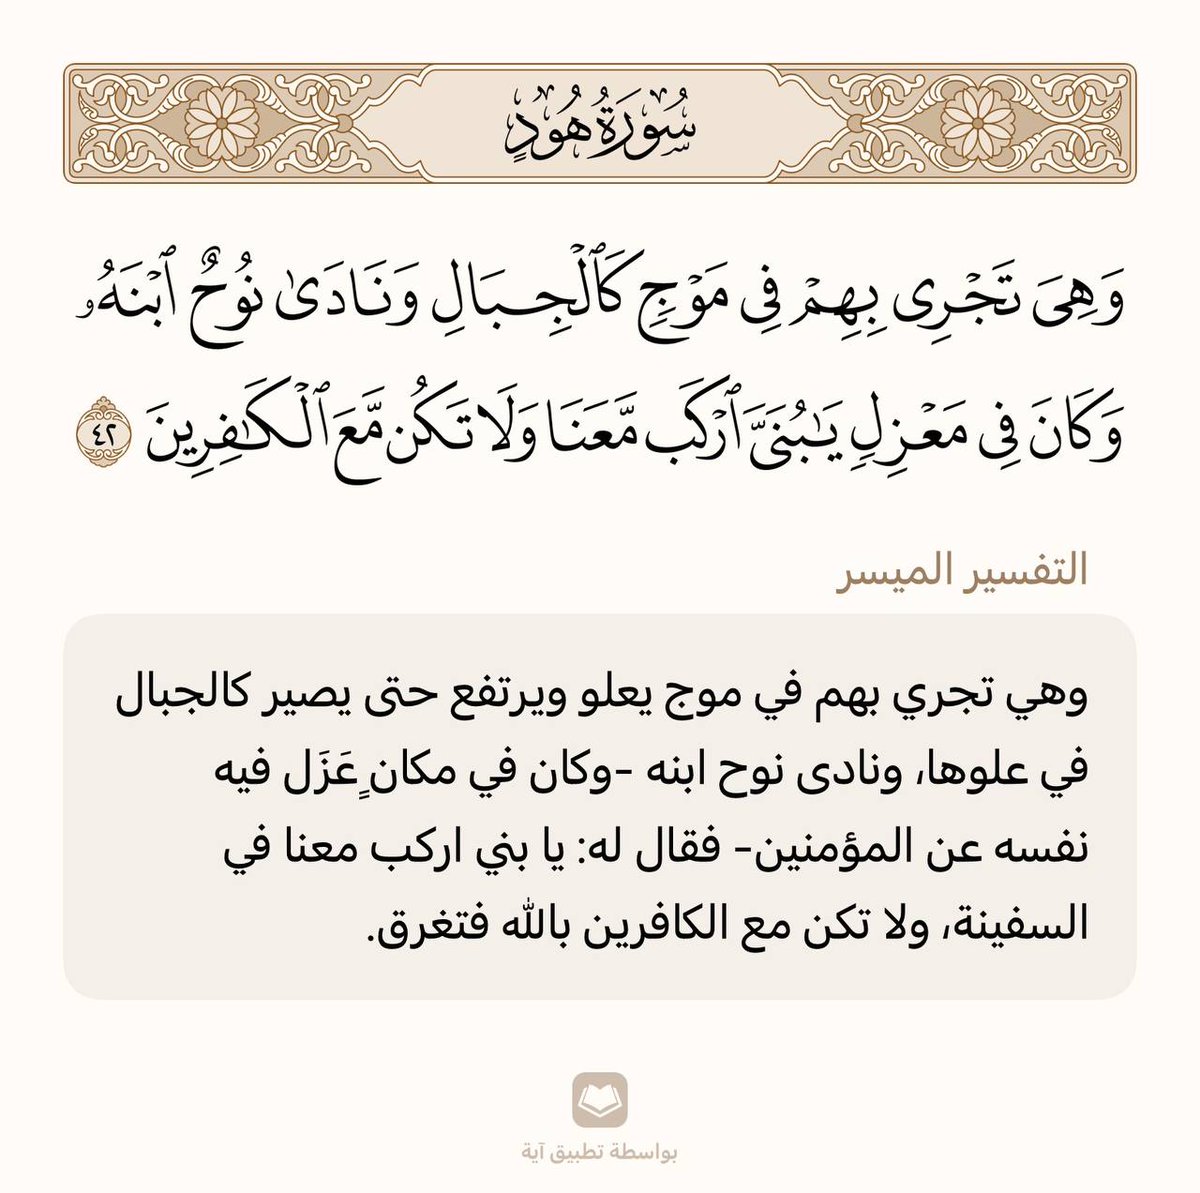 سُورَةُ هُودٍ
وَهِيَ تَجۡرِي بِهِمۡ فِي مَوۡجٖ كَٱلۡجِبَالِ وَنَادَىٰ نُوحٌ ٱبۡنَهُۥ
وَكَانَ فِي مَعۡزِلٖ يَٰبُنَيَّ ٱرۡكَب مَّعَنَا وَلَا تَكُن مَّعَ ٱلۡكَٰفِرِينَ ٤٢
التفسير الميسر
وهي تجري بهم في موج يعلو ويرتفع حتى يصير كالجبال
في علوها، ونادى نوح ابنه -وكان في مكان ٍعَزَل فيه
نفسه عن المؤمنين- فقال له: يا بني اركب معنا في
السفينة، ولا تكن مع الكافرين بالله فتغرق.
بواسطة تطبيق آية